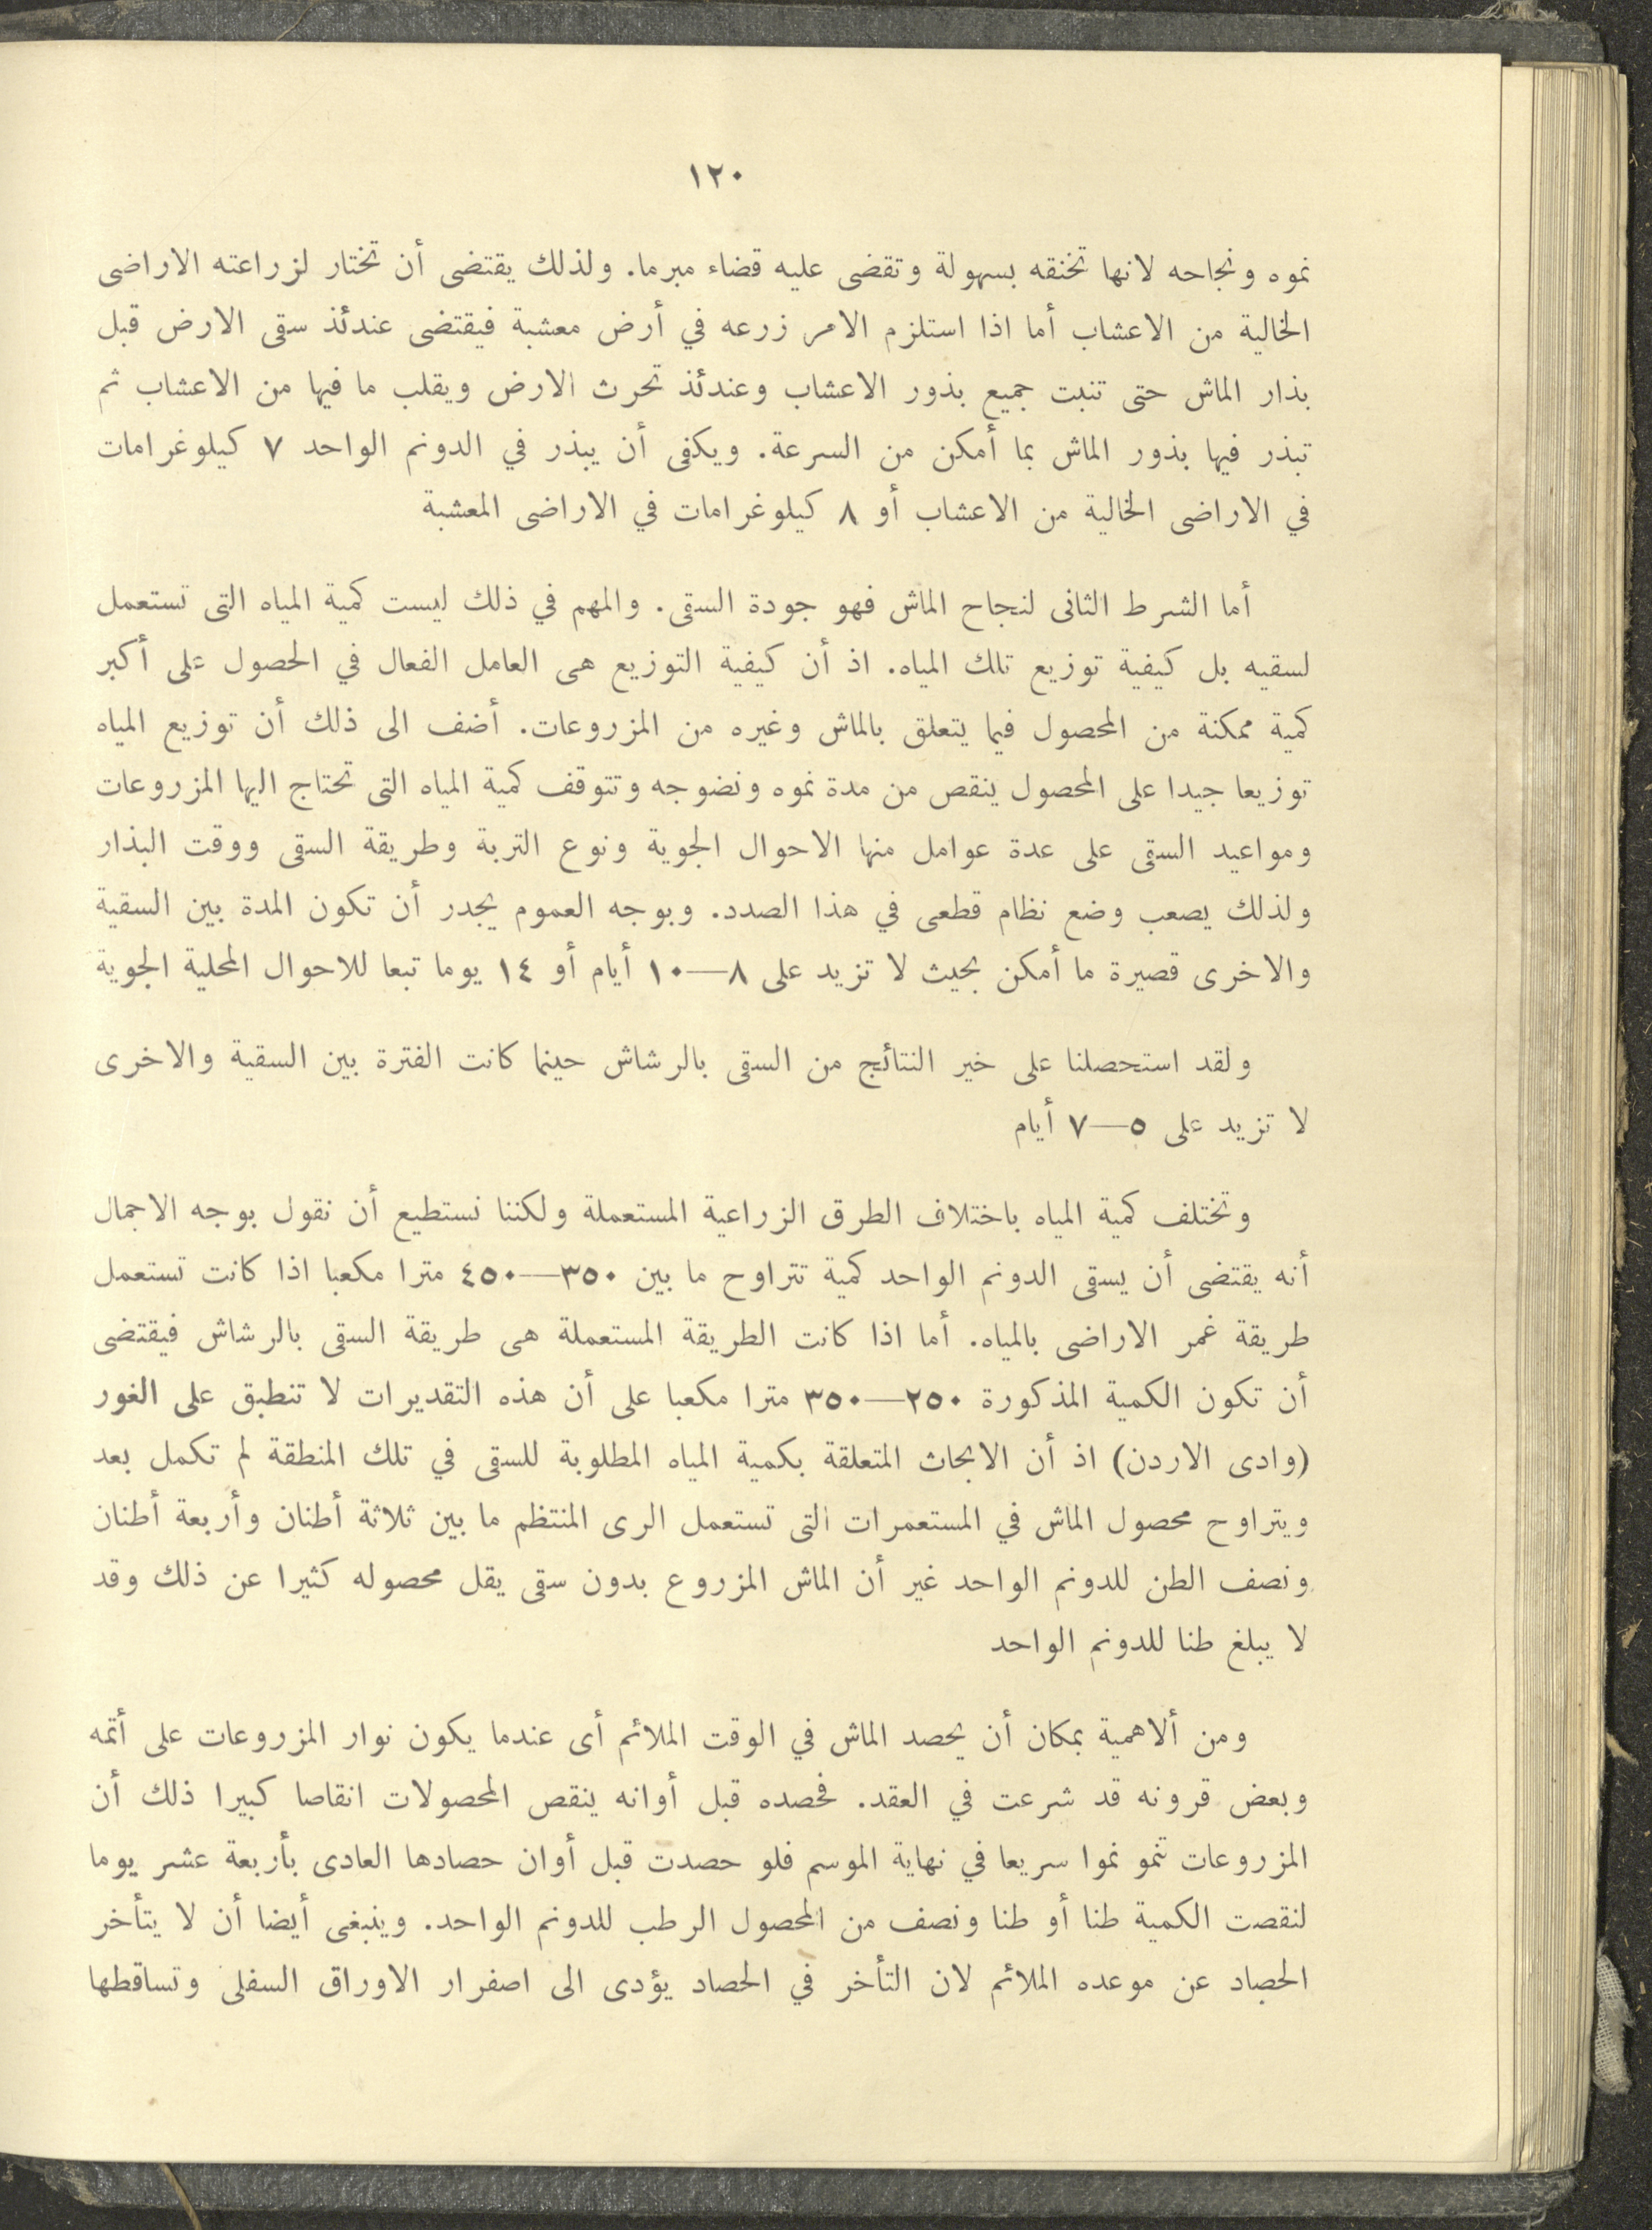 ١٢٠
نموه ونجاحه لانها تخنقه بسهولة وتقضى عليه قضاء مبرما. ولذلك يقتضى أن تختار لزراعته الاراضى
الخالية من الاعشاب أما اذا استلزم الامر زرعه في أرض معشبة فيقتضى عندئذ سقى الارض قبل
بذار الماش حتى تنبت جميع بذور الاعشاب وعندئذ تحرث الارض ويقلب ما فيها من الاعشاب ثم
تبذر فيها بذور الماش بما أمكن من السرعة. ويكفى أن يبذر في الدونم الواحد ٧ كيلوغرامات
في الاراضى الخالية من الاعشاب أو ٨ كيلوغرامات في الاراضى المعشبة
أما الشرط الثانى لنجاح الماش فهو جودة السقى. والمهم في ذلك ليست كمية المياه التى تستعمل
لسقيه بل كيفية توزيع تلك المياه. اذ أن كيفية التوزيع هى العامل الفعال في الحصول على أكبر
كمية ممكنة من المحصول فيما يتعلق بالماش وغيره من المزروعات. أضف الى ذلك أن توزيع المياه
توزيعا جيدا على المحصول ينقص من مدة نموه ونضوجه وتتوقف كمية المياه التى تحتاج اليها المزروعات
ومواعيد السقى على عدة عوامل منها الاحوال الجوية ونوع التربة وطريقة السقى ووقت البذار
ولذلك يصعب وضع نظام قطعى في هذا الصدد. وبوجه العموم يجدر أن تكون المدة بين السقية
والاخرى قصيرة ما أمكن بحيث لا تزيد على ٨—١٠ أيام أو ١٤ يوما تبعا للاحوال المحلية الجوية
ولقد استحصلنا على خير النتائج من السقى بالرشاش حينما كانت الفترة بين السقية والاخرى
لا تزيد على ٥—٧ أيام
وتختلف كمية المياه باختلاف الطرق الزراعية المستعملة ولكننا نستطيع أن نقول بوجه الاجمال
أنه يقتضى أن يسقى الدونم الواحد كمية تتراوح ما بين ٣٥٠—٤٥٠ مترا مكعبا اذا كانت تستعمل
طريقة غمر الاراضى بالمياه. أما اذا كانت الطريقة المستعملة هى طريقة السقى بالرشاش فيقتضى
أن تكون الكمية المذكورة ٢٥٠—٣٥٠ مترا مكعبا على أن هذه التقديرات لا تنطبق على الغور
(وادى الاردن) اذ أن الابحاث المتعلقة بكمية المياه المطلوبة للسقى في تلك المنطقة لم تكمل بعد
ويتراوح محصول الماش في المستعمرات التى تستعمل الرى المنتظم ما بين ثلاثة أطنان وأربعة أطنان
ونصف الطن للدونم الواحد غير أن الماش المزروع بدون سقى يقل محصوله كثيرا عن ذلك وقد
لا يبلغ طنا للدونم الواحد
ومن ألاهمية بمكان أن يحصد الماش في الوقت الملائم أى عندما يكون نوار المزروعات على أتمه
وبعض قرونه قد شرعت في العقد. فحصده قبل أوانه ينقص المحصولات انقاصا كبيرا ذلك أن
المزروعات تنمو نموا سريعا في نهاية الموسم فلو حصدت قبل أوان حصادها العادى بأربعة عشر يوما
لنقصت الكمية طنا أو طنا ونصف من المحصول الرطب للدونم الواحد. وينبغى أيضا أن لا يتأخر
الحصاد عن موعده الملائم لان التأخر في الحصاد يؤدى الى اصفرار الاوراق السفلى وتساقطها